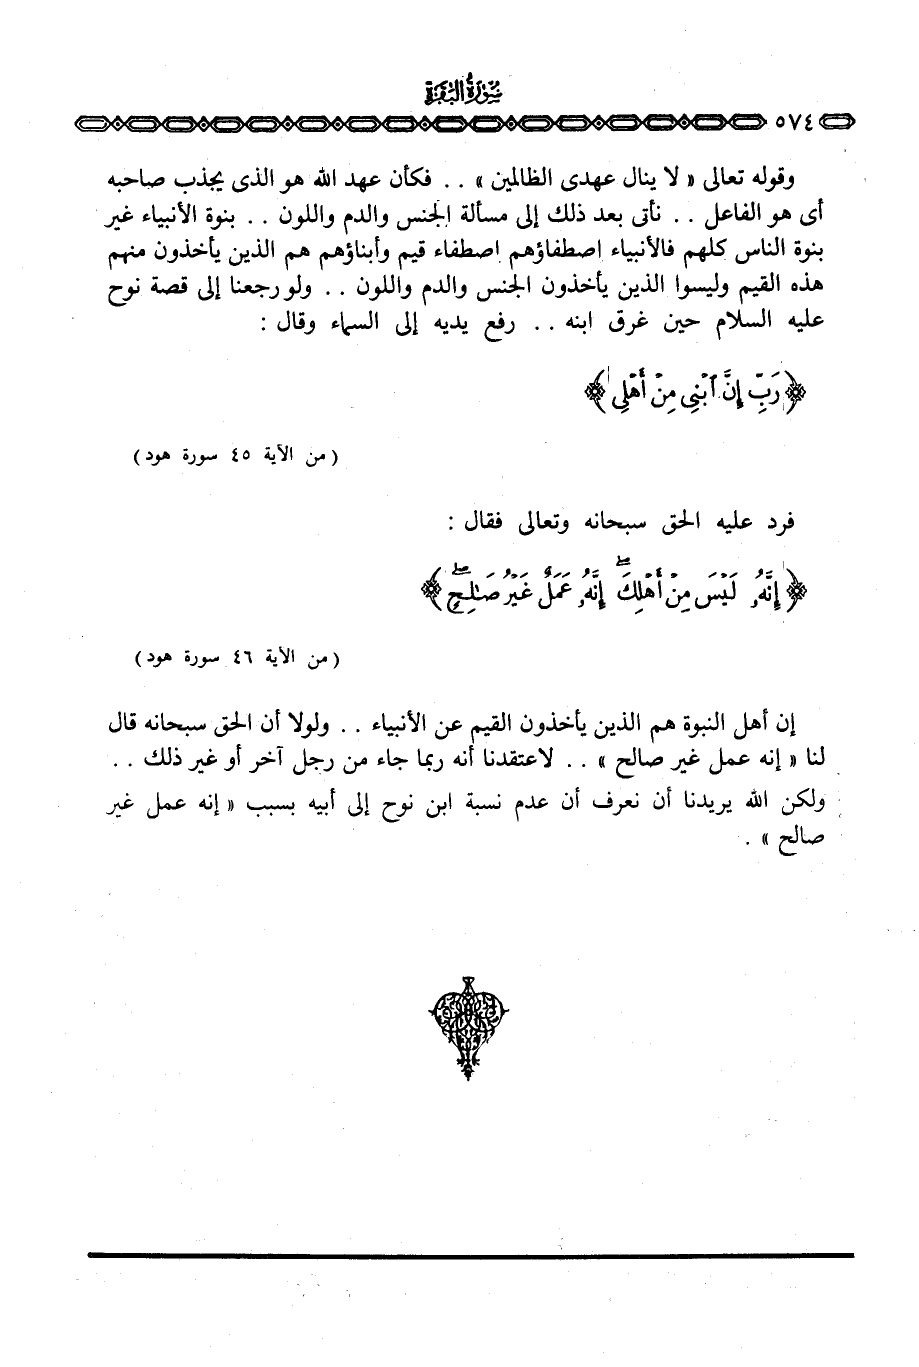 سورة البقرة
٥٧٤
وقوله تعالى « لا ينال عهدى الظالمين » . . فكأن عهد الله هو الذى يجذب صاحبه
أى هو الفاعل . . نأتى بعد ذلك إلى مسألة الجنس والدم واللون . . بنوة الأنبياء غير
بنوة الناس كلهم فالأنبياء اصطفاؤهم اصطفاء قيم وأبناؤهم هم الذين يأخذون منهم
هذه القيم وليسوا الذين يأخذون الجنس والدم واللون . . ولو رجعنا إلى قصة نوح
عليه السلام حين غرق ابنه . . رفع يديه إلى السماء وقال :
﴿ رَبِّ إِنَّ ٱبْنِى مِنْ أَهْلِى ﴾
( من الآية ٤٥ سورة هود )
فرد عليه الحق سبحانه وتعالى فقال :
﴿ إِنَّهُۥ لَيْسَ مِنْ أَهْلِكَ ۖ إِنَّهُۥ عَمَلٌ غَيْرُ صَـٰلِحٍ ۖ ﴾
( من الآية ٤٦ سورة هود )
إن أهل النبوة هم الذين يأخذون القيم عن الأنبياء . . ولولا أن الحق سبحانه قال
لنا « إنه عمل غير صالح » . . لاعتقدنا أنه ربما جاء من رجل آخر أو غير ذلك . .
ولكن الله يريدنا أن نعرف أن عدم نسبة ابن نوح إلى أبيه بسبب « إنه عمل غير
صالح » .